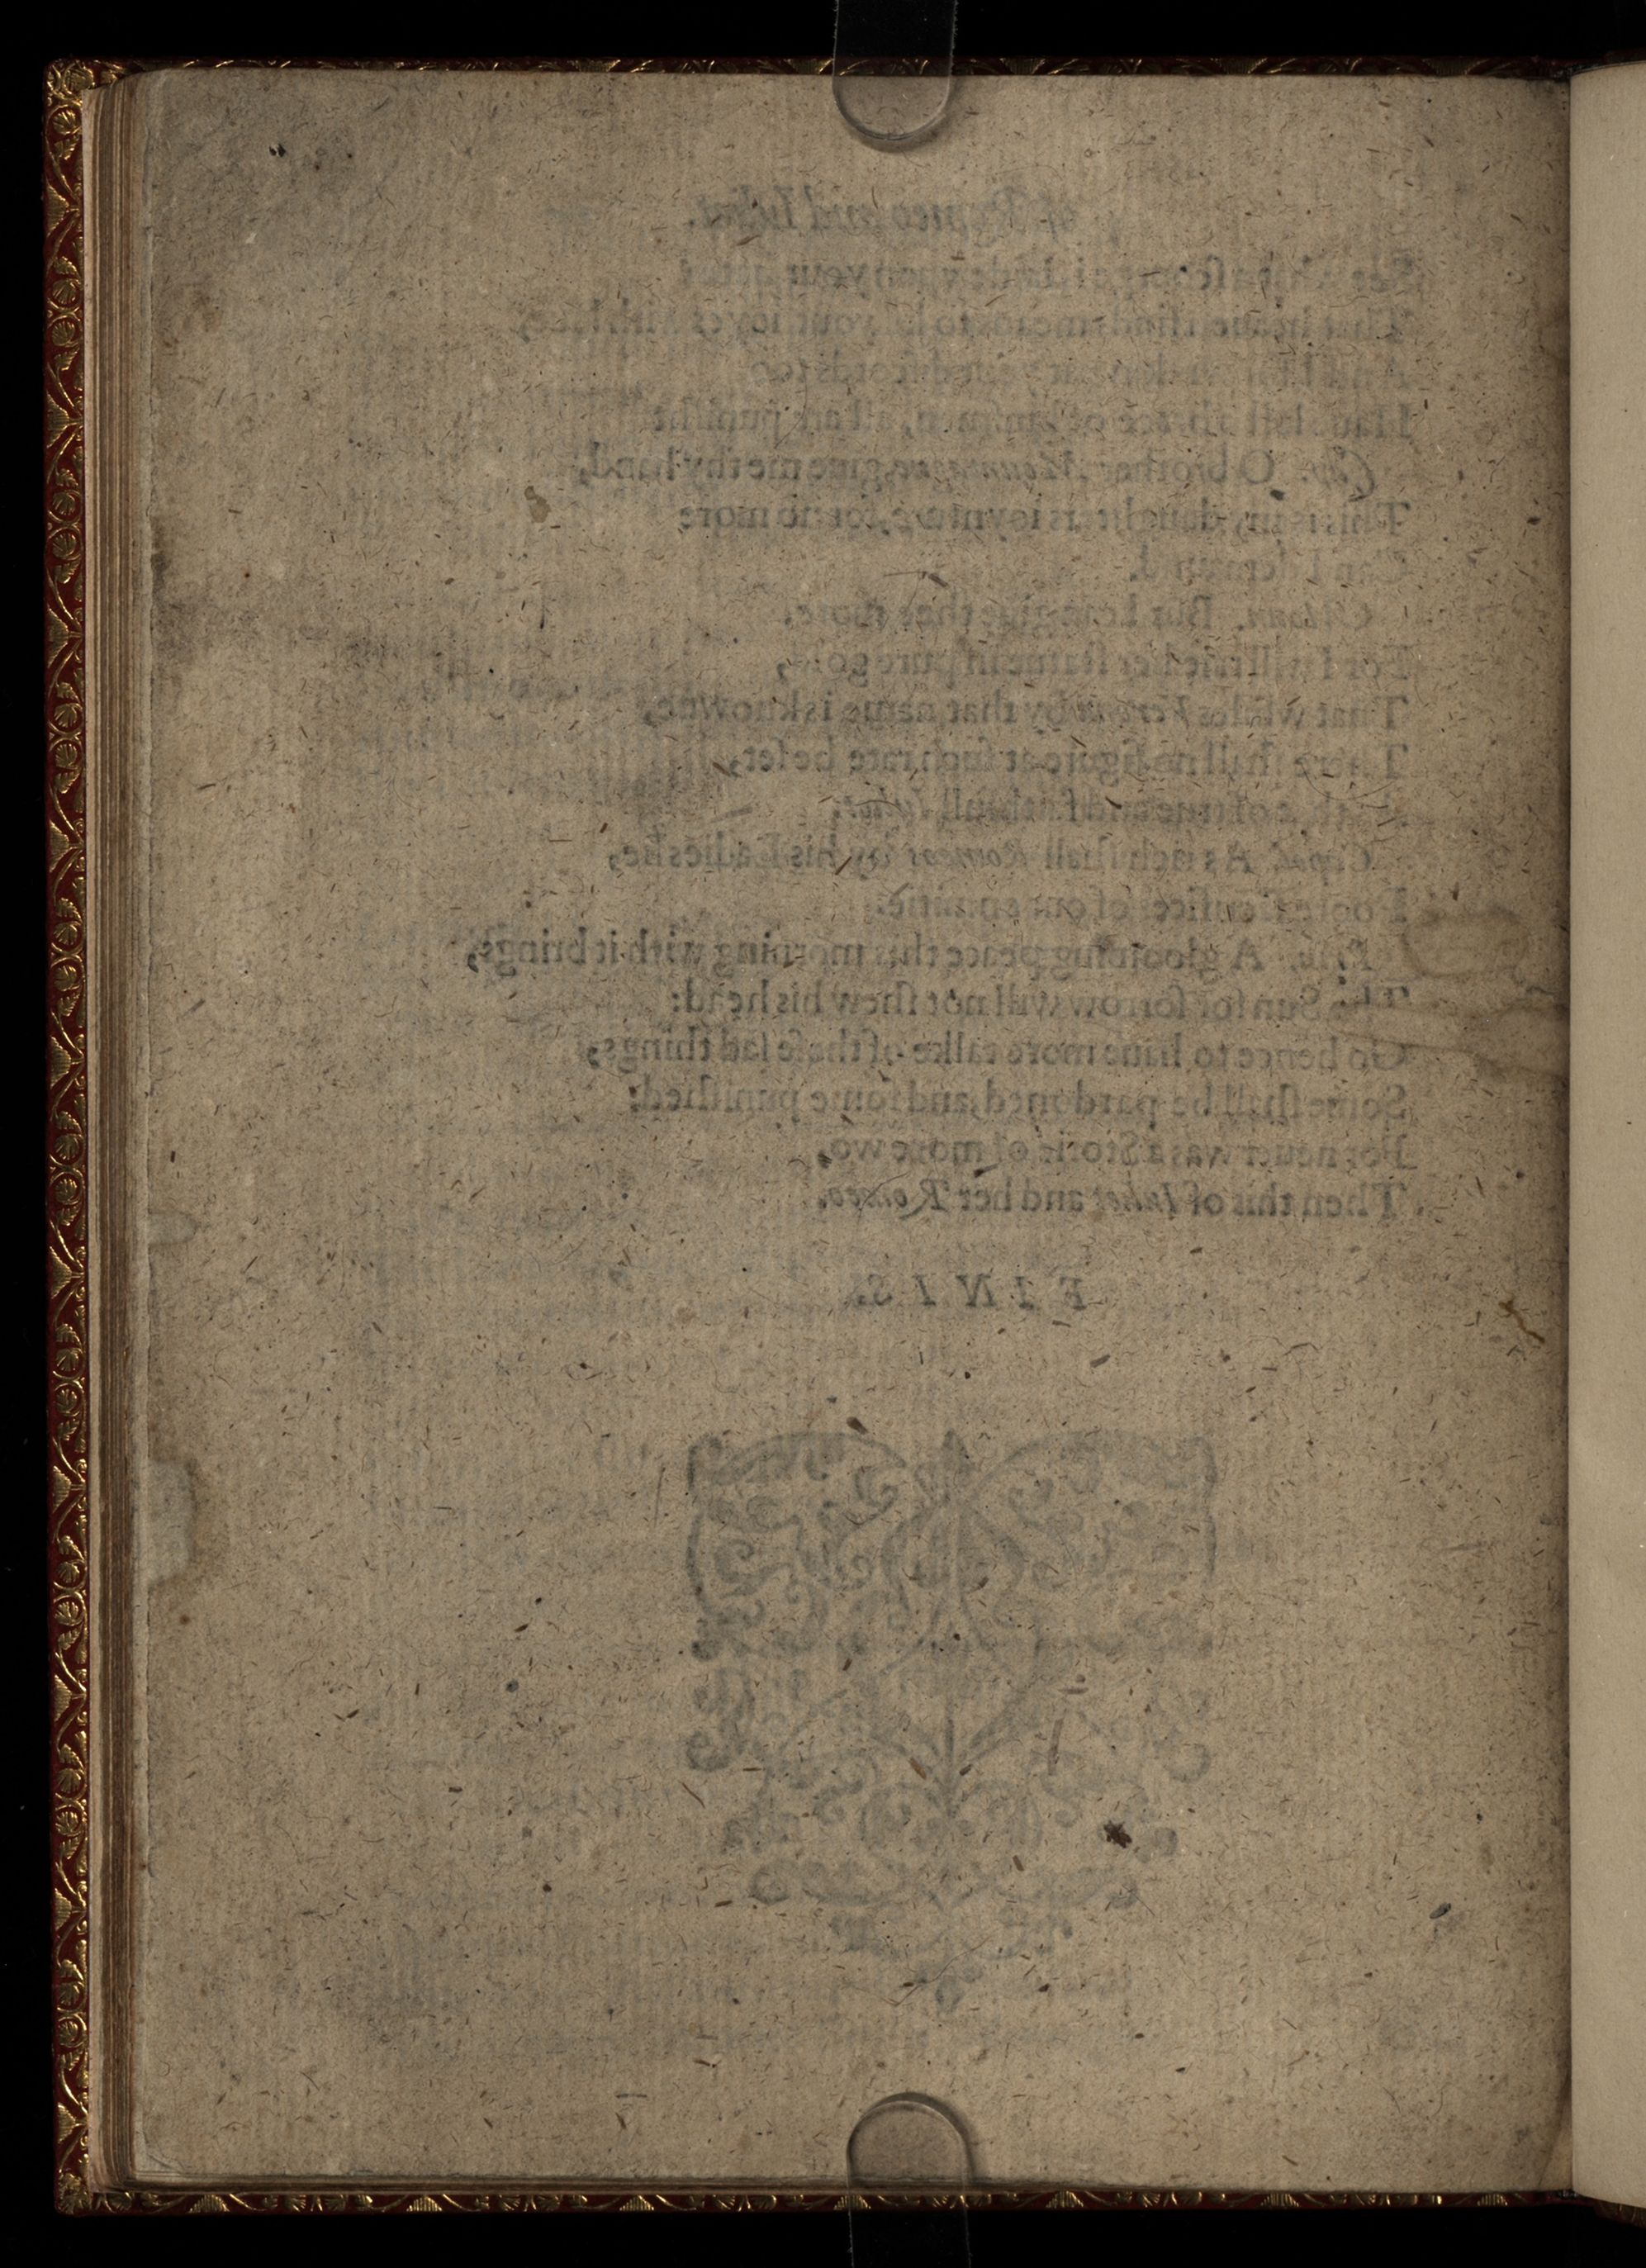 of Romeo and Iuliet.
See what a ſcourge is laide vpon your hate?
That heauen finds means to kil your ioyes with loue,
And I for winking at your diſcords too,
Haue loſt a brace of kinſmen, all are puniſht.
Cap. O brother Mountague, giue me thy hand,
This is my daughters ioynture, for no more
Can I demaund.
Moun. But I can giue thee more,
For I will her ſtatue in pure gold,
That whiles Verona by that name is knowne,
There ſhall no figure at ſuch rate be ſet,
that of true and faithfull Iuliet.
Capel. As rich ſhall Romeos by his Ladies lie,
Poore ſacrifices of our enmitie.
Prin. A glooming peace this morning with it brings,
The Sun for ſorrow will not ſhew his head:
Go hence to haue more talke of theſe ſad things,
Some ſhall be pardoned, and ſome puniſhed:
For neuer was a Storie of more wo,
Then this of Iuliet and her Romeo.
FINIS.